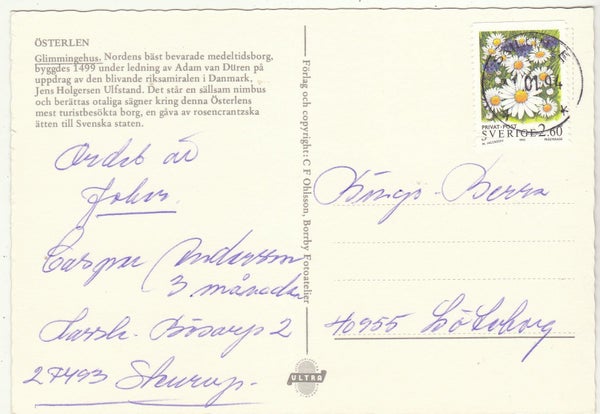 ÖSTERLEN
Glimmingehus. Nordens bäst bevarade medeltidsborg,
byggdes 1499 under ledning av Adam van Düren på
uppdrag av den blivande riksamiralen i Danmark,
Jens Holgersen Ulfstand. Det står en sällsam nimbus
och berättas otaliga sägner kring denna Österlens
mest turistbesökta borg, en gåva av rosencrantzska
ätten till Svenska staten.
Ordet är
Caspar Andersson
3 månader
Bösarp 2
27493 Skurup.
Förlag och copyright: C F Ohlsson, Borrby Fotoatelier
ULTRA
PRIVAT-POST
SVERIGE 2.60
01.94
Bingo-Berra
40955 Göteborg